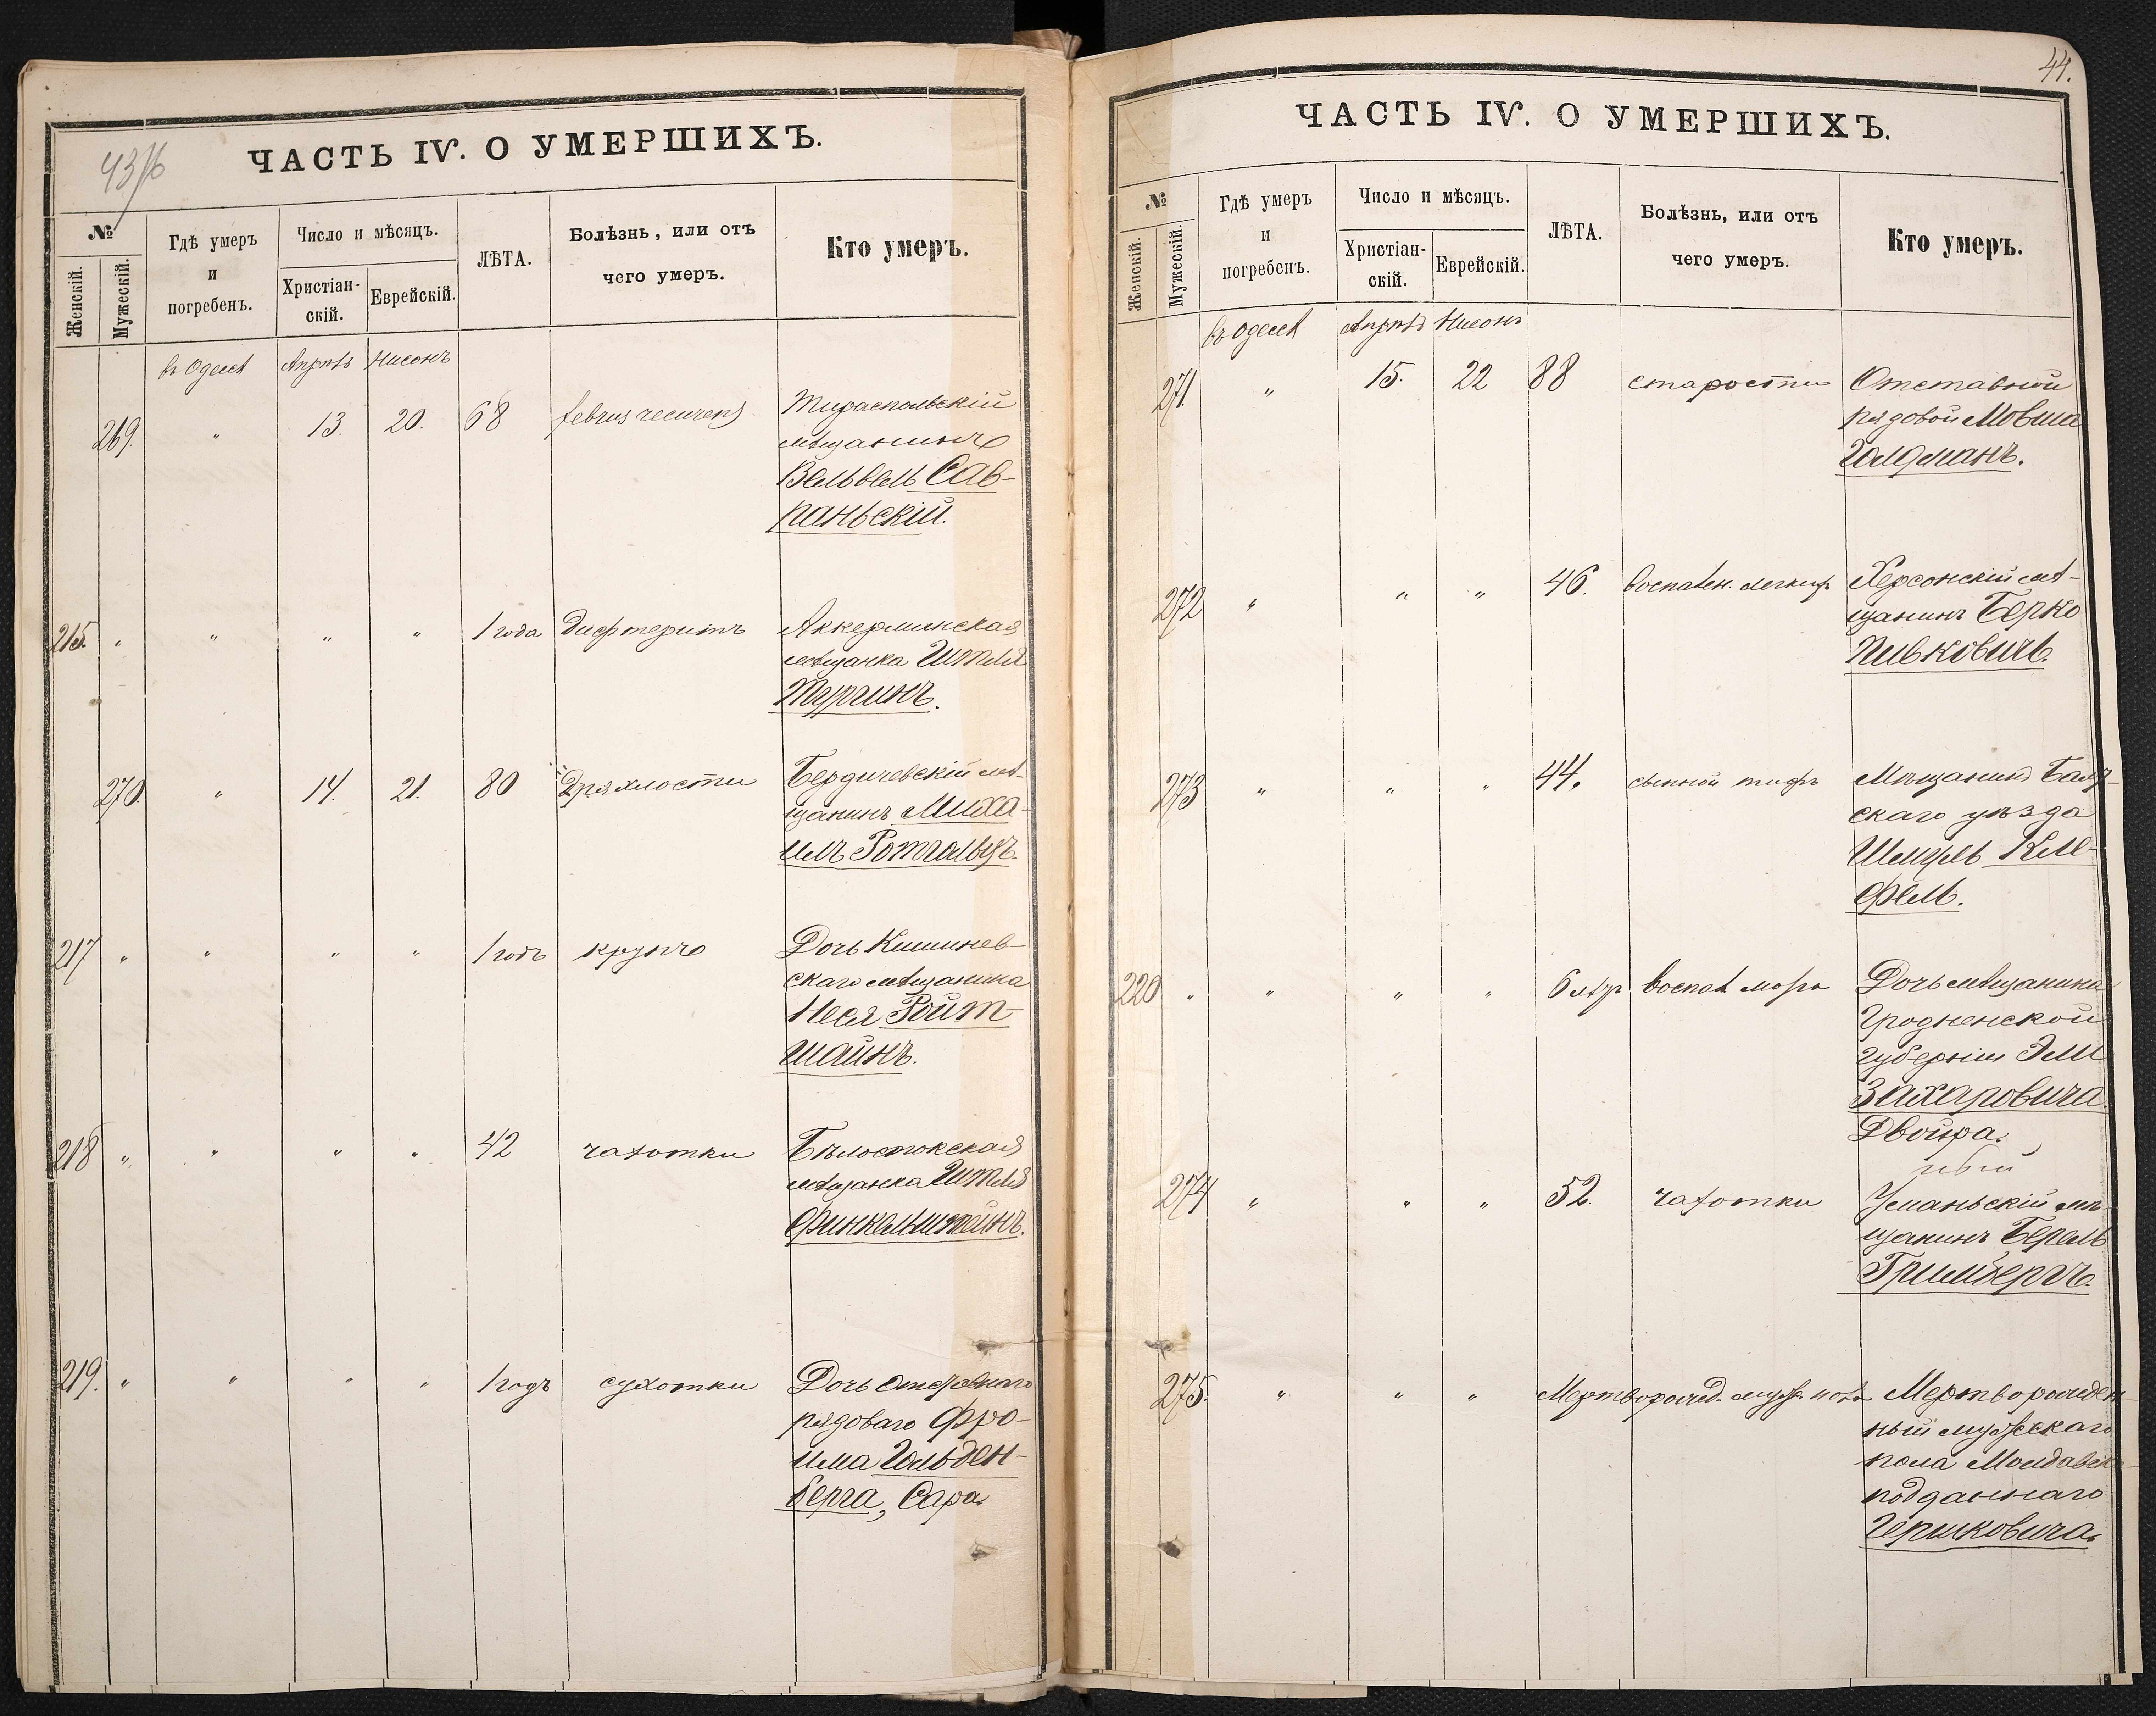 43/б
ЧАСТЬ IV. О УМЕРШИХЪ.
№
Женскій.
Мужескій.
Гдѣ умеръ
и
погребенъ.
Число и мѣсяцъ.
Христіан-
скій.
Еврейскій.
ЛѢТА.
Болѣзнь, или отъ
чего умеръ.
Кто умеръ.
въ Одессѣ Апрѣль Нисонъ
269. " 13. 20. 68 februs recurens Тираспольскій
мѣщанинъ
Вельвель Сав-
раньскій.
215. " " " " 1 года дифтеритъ Аккерманская
мѣщанка Шейтля
Тургинъ.
270. " 14. 21. 80 Дряхлости Бердичевскій мѣ-
щанинъ Миха-
илъ
217 " " " " 1 годъ крупъ Дочь Кишинев-
скаго мѣщанина
Неся Ройт-
шайнъ.
218 " " " " 42 чахотки Бѣлостокская
мѣщанка
Финкельштейнъ.
219. " " " " 1 годъ сухотки Дочь отставнаго
рядоваго Фро-
има Гольден-
берга, Сара.
44.
ЧАСТЬ IV. О УМЕРШИХЪ.
№
Женскій.
Мужескій.
Гдѣ умеръ
и
погребенъ.
Число и мѣсяцъ.
Христіан-
скій.
Еврейскій.
ЛѢТА.
Болѣзнь, или отъ
чего умеръ.
Кто умеръ.
въ Одессѣ Апрѣль Нисонъ
271. " 15. 22 88 старости Отставной
рядовой Мовша
Голдманъ.
272 " " " 46. воспален. легкихъ Херсонскій мѣ-
щанинъ Берко
Пивковичъ.
273 " " " 44. сыпной тифъ Мѣщанинъ Балт-
скаго уѣзда
Шмуль Кле-
фель.
220 " " " " 6 лѣтъ воспал мозга Дочь мѣщанина
Гродненской
губерніи Эли
Захаровича
Двойра.
274 " " " 52. чахотки Уманьскій мѣ-
щанинъ Берель
Гримбергъ.
275. " " " Мертворожд. муж. пола Мертворожден-
ный мужескаго
пола Молдавск-
подданнаго
Гершковича.